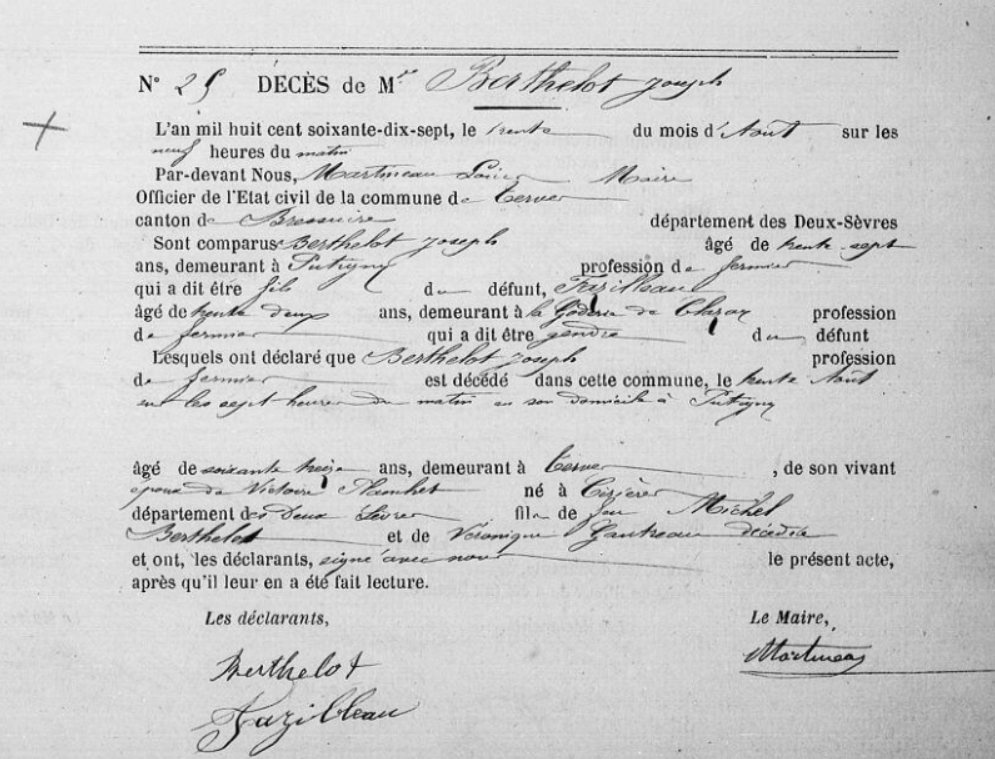 N° 25 DECÈS de Mr Berthelot Joseph
L'an mil huit cent soixante-dix-sept, le trente du mois d'Août sur les
neuf heures du matin
Par-devant Nous, Martineau Louis Maire
Officier de l'Etat civil de la commune de Terves
canton de Bressuire département des Deux-Sèvres
Sont comparus Berthelot Joseph âgé de trente-sept
ans, demeurant à Putigny profession de fermier
qui a dit être fils du défunt, Fazilleau
âgé de trente deux ans, demeurant à la de profession
de fermier qui a dit être gendre du défunt
Lesquels ont déclaré que Berthelot Joseph profession
de fermier est décédé dans cette commune, le trente Août
sur les sept heures du matin en son domicile à Putigny
âgé de soixante treize ans, demeurant à Terves , de son vivant
époux de Victoire né à Cirières
département des Deux Sèvres fils de feu Michel
Berthelot et de Véronique Gautreau décédée
et ont, les déclarants, signé avec nous le présent acte,
après qu'il leur en a été fait lecture.
Les déclarants, Le Maire,
Berthelot Martineau
Fazilleau